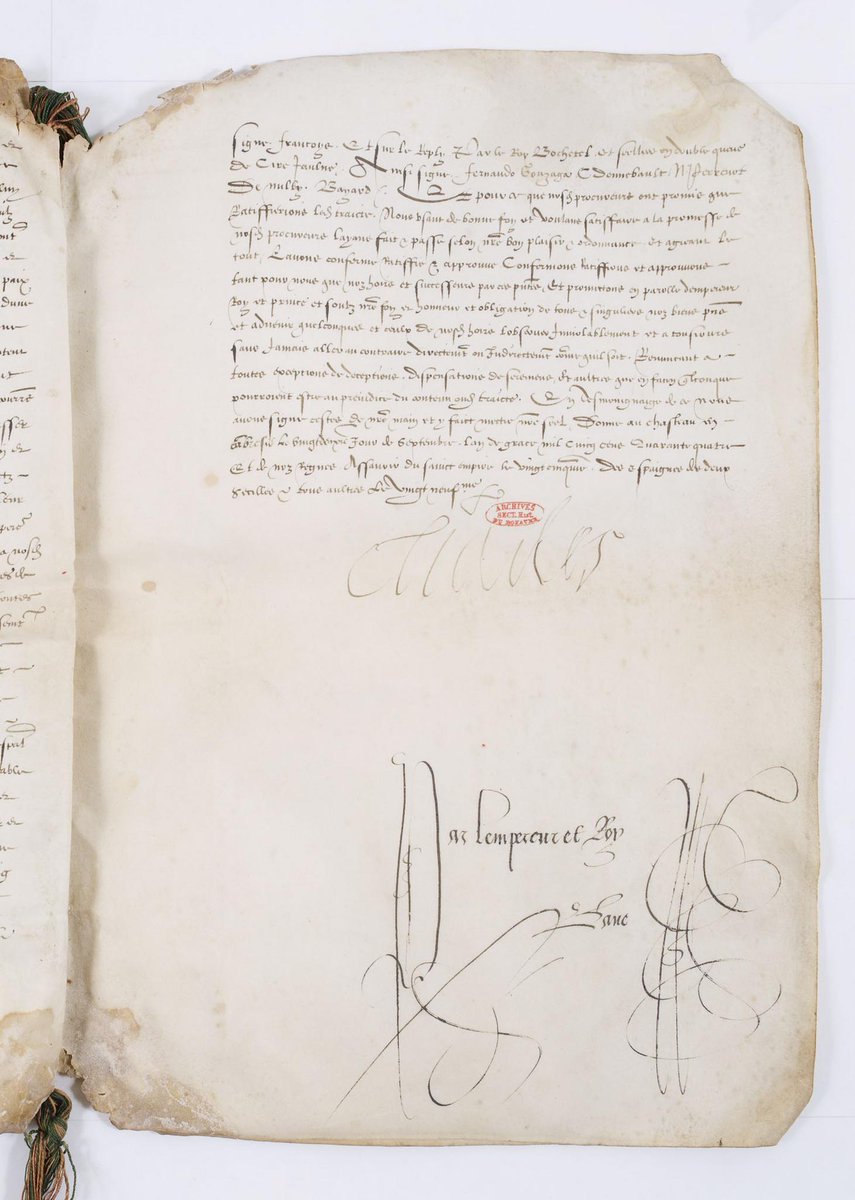 signe francoys. Et sur le Reply Par le Roy Bochetel. et seelle en double queue
de Cire Jaulne. Ainsi signe. Fernando Gonzaga C donnebault. N perrenot
De nully. Bayard. Et pource que nosd procureurs ont promis que
Ratiffierions led traicte. Nous usant de bonne foy et voulans satisfaire a la promesse de
nosd procureurs layans fait & passe selon nre bon plaisir & ordonnance et agreant le
tout, Lavons conferme Ratiffie & approuve Confermons Ratiffions et approuvons
tant pour nous que noz hoirs et successeurs par ces pntes, Et promectons en parolle dempereur
Roy et prince et soubz nre foy et honneur et obligation de tous & singuliers noz biens pns
et advenir quelconques et ceulx de nosd hoirs lobserver Inviolablement et a tousiours
sans Jamais aller au contraire directemt ou Indirectemt comt quil soit. Renuncant a
toutes exceptions de deceptions. dispensations de seremens, et aultres que en facon
pourroient estre au preiudice du contenu oud traicte. En tesmoingnaige de ce Nous
avons signe cestes de nre main et y faict mectre nre seel. Donne au chasteau en
Cambresis Le Vingt Jour de Septembre. lan de grace mil Cincq cens Quarante quatre
Et de noz Regnes. Assavoir du sainct empire le vingt cinqume. des espaignes de deux
Secilles & tous aultres Le Vingt neufme
ARCHIVES
SECT. HIST.
DU ROYAUME
Charles
Par lempereur et Roy
Bave